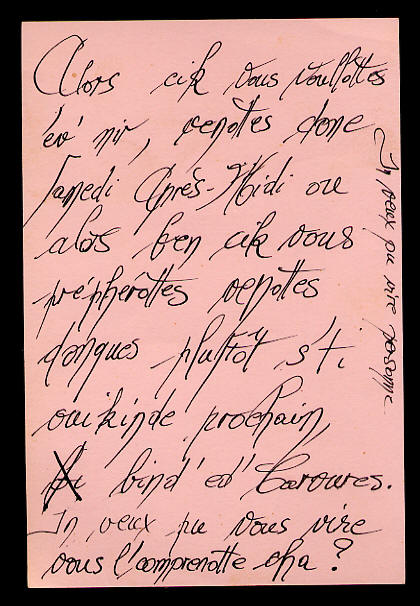 Alors cik vous voullottes
év' nir, venottes donc
Samedi Après-Midi ou
alors ben cik vous
préphérottes venottes
dongues pluttôt s'ti
ouikinde prochain,
bind' ed' Baroures.
In veux pu vous vire
vous l'comprenotte cha ?
In veux pu vire personne